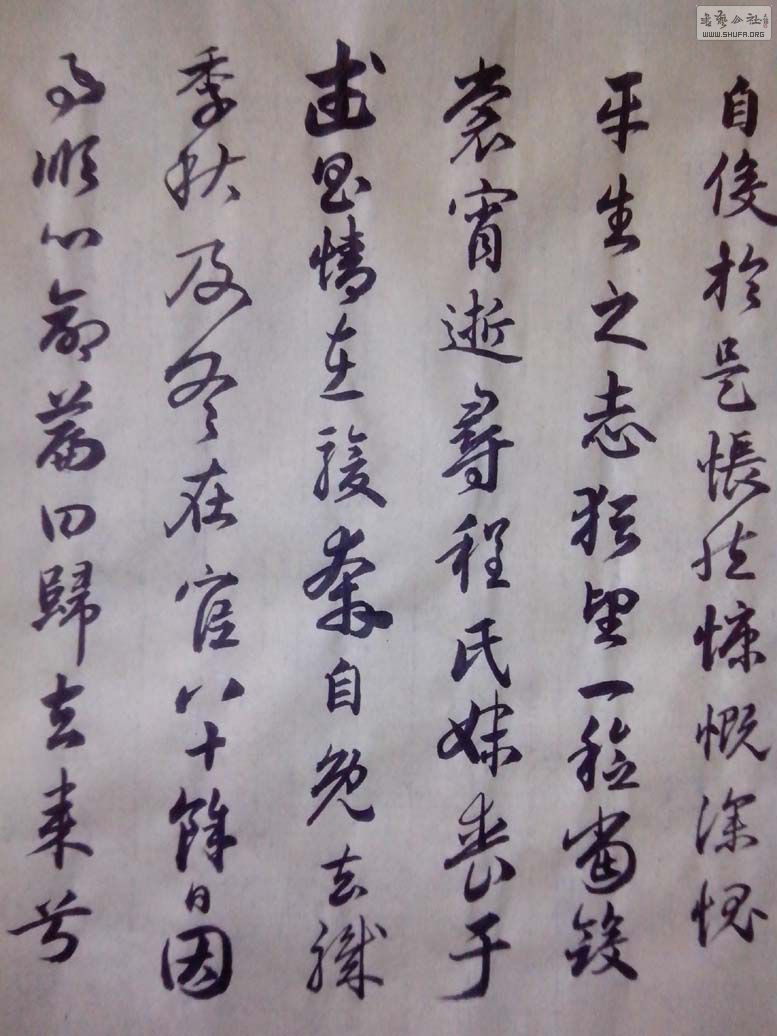 自役於是悵然慷慨深愧
平生之志猶望一稔當斂
裳宵逝尋程氏妹喪于
武昌情在駿奔自免去職
季秋及冬在官八十餘日因
事順心命篇曰歸去來兮
書藝公社
WWW.SHUFA.ORG